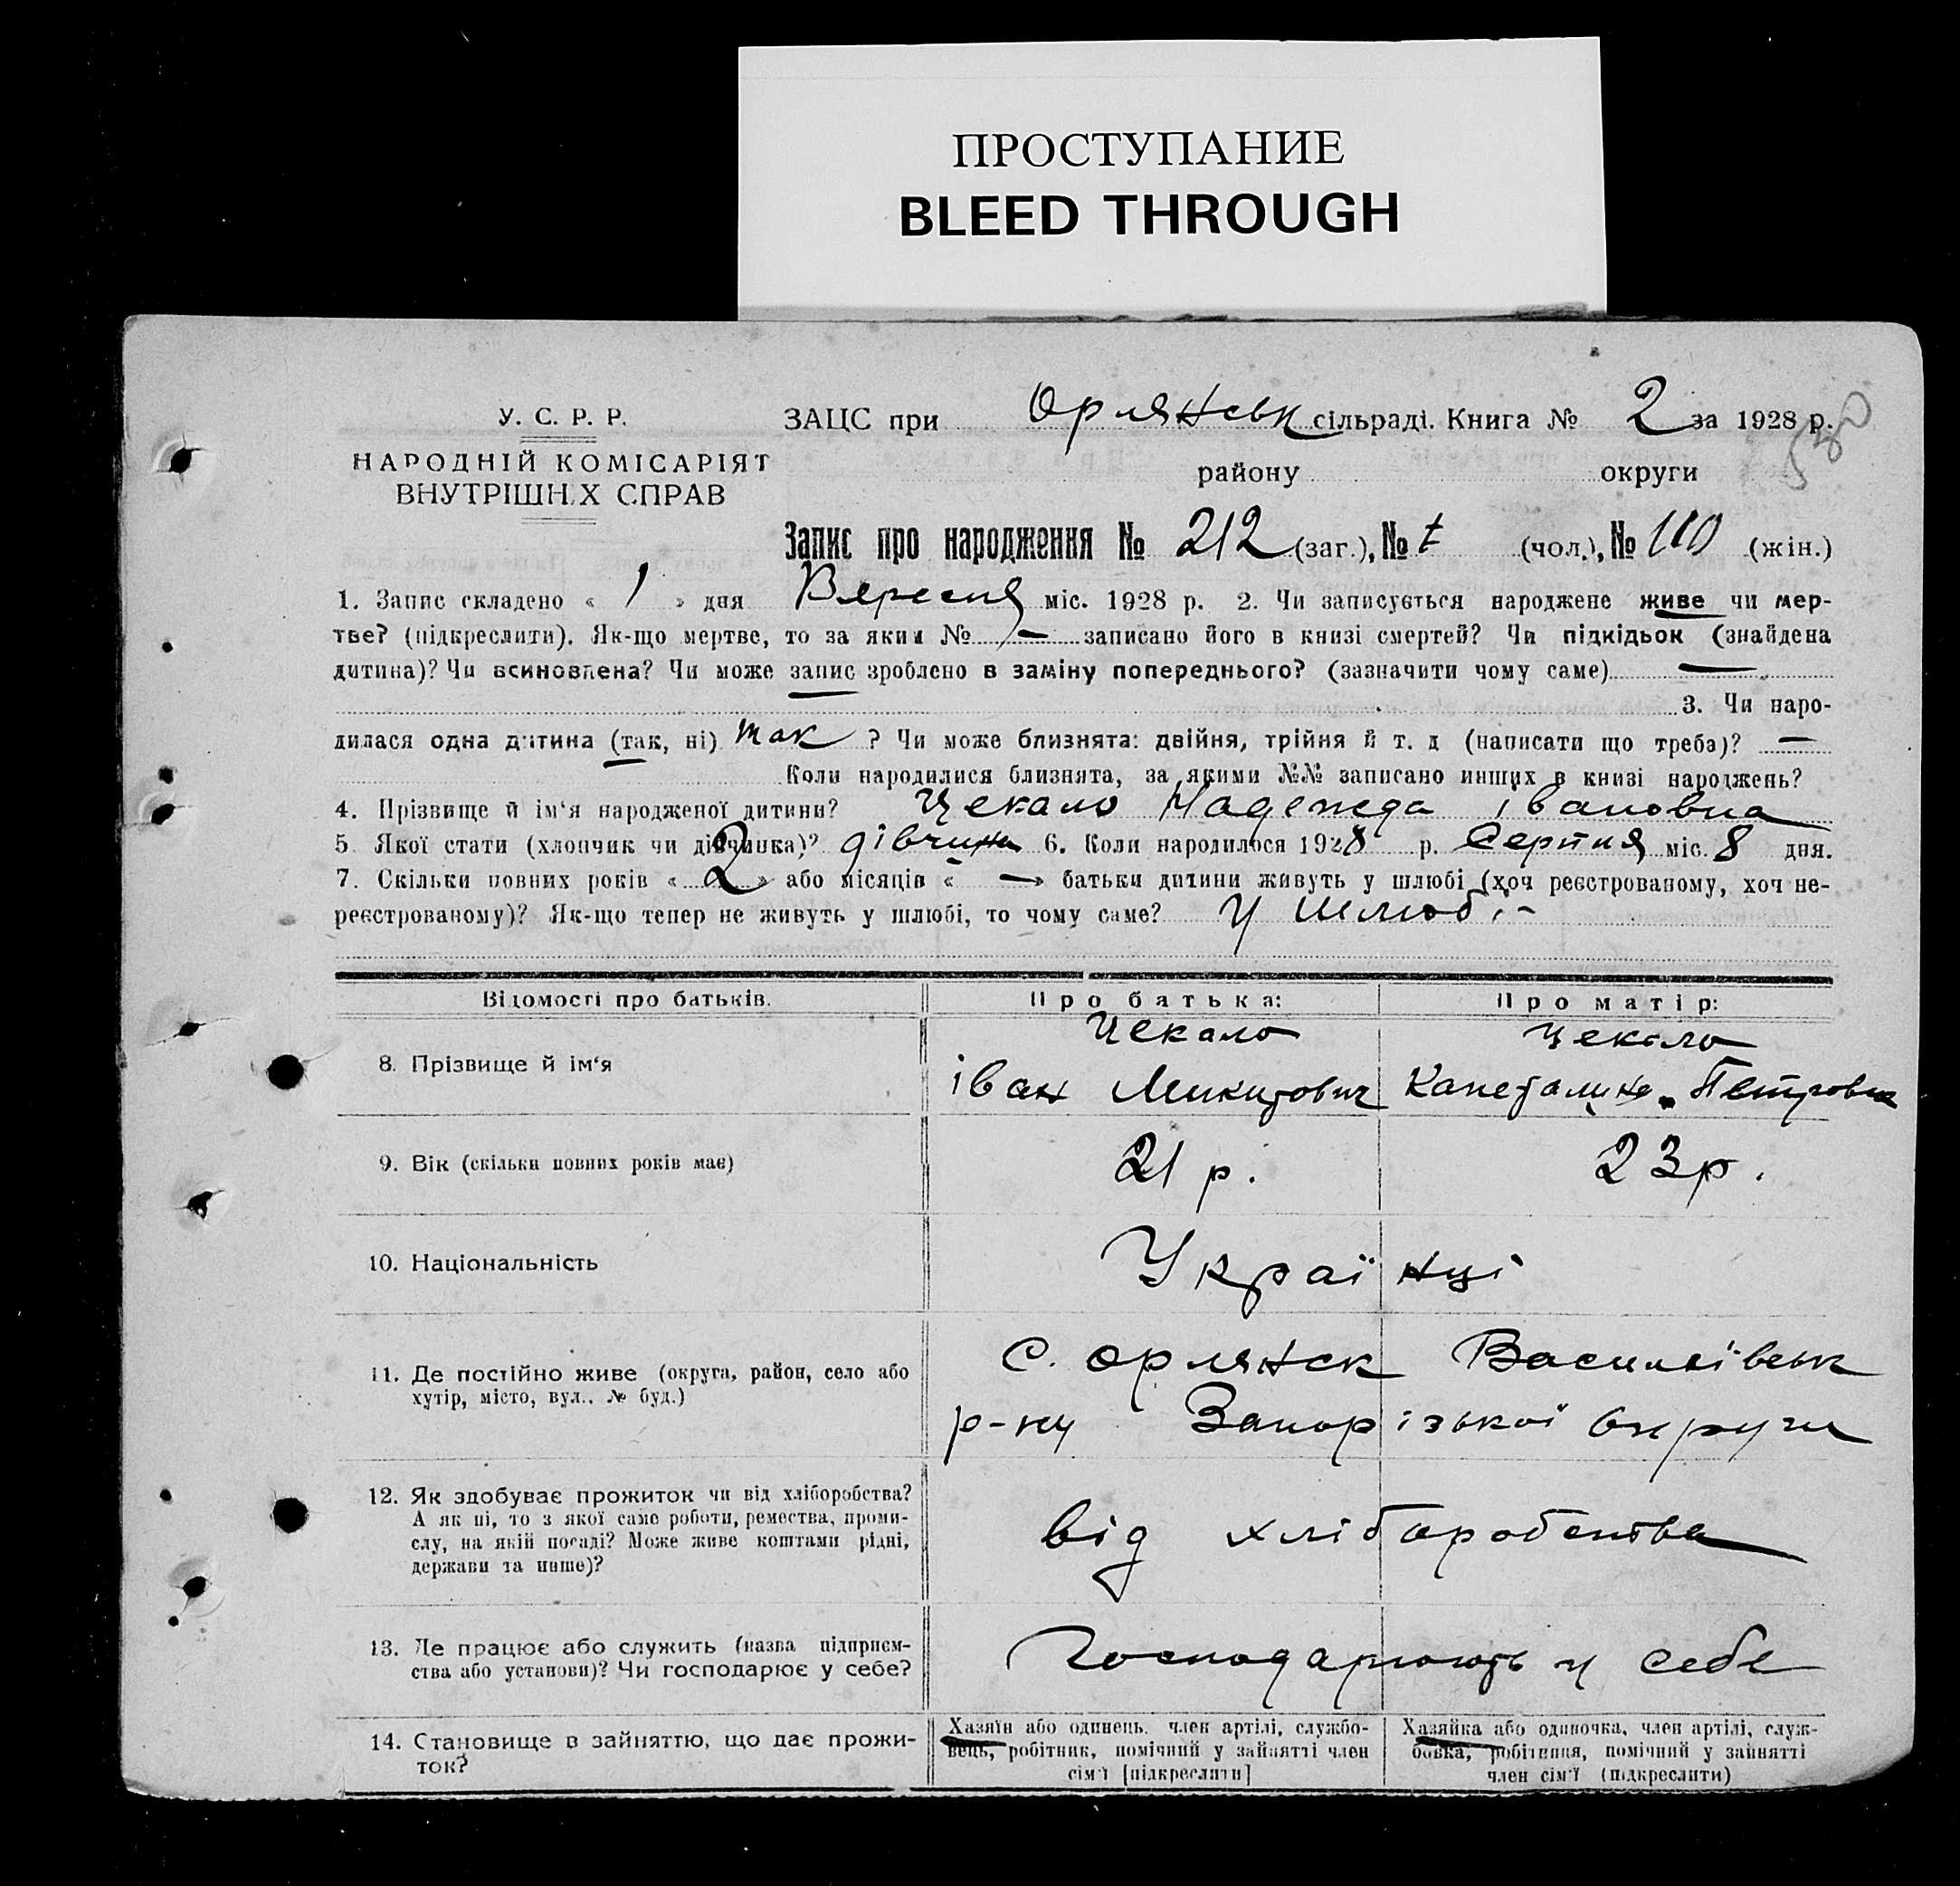 ПРОСТУПАНИЕ
BLEED THROUGH
У. С. Р. Р.
НАРОДНІЙ КОМІСАРІЯТ
ВНУТРІШНІХ СПРАВ
ЗАЦС при Орлянськ сільраді. Книга № 2 за 1928 р.
району округи
530
Запис про народження № 212 (заг.), № (чол.), № 110 (жін.)
1. Запис складено « 1 » дня Вересня міс. 1928 р. 2. Чи записується народжене живе чи мер-
тве? (підкреслити). Як-що мертве, то за яким № — записано його в книзі смертей? Чи підкідьок (знайдена
дитина)? Чи всиновлена? Чи може запис зроблено в заміну попереднього? (зазначити чому саме) —
3. Чи наро-
дилася одна дитина (так, ні) так ? Чи може близнята: двійня, трійня й т. д (написати що треба)? —
Коли народилися близнята, за якими №№ записано инших в книзі народжень?
4. Прізвище й ім‘я народженої дитини? Цекало Надежда івановна
5 Якої стати (хлопчик чи дівчинка)? дівчина 6. Коли народилося 1928 р. Серпня міс. 8 дня.
7. Скільки повних років « 2 » або місяців « — » батьки дитини живуть у шлюбі (хоч реєстрованому, хоч не-
реєстрованому)? Як-що тепер не живуть у шлюбі, то чому саме? У шлюбі -
Відомості про батьків.
Про батька:
Про матір:
8. Прізвище й ім‘я
Цекало
іван Микитович
Цекало
Петровна
9. Вік (скільки повних років має)
21 р.
23 р.
10. Національність
Українці
11. Де постійно живе (округа, район, село або
хутір, місто, вул., № буд.)
с. Орлянск Василівськ
р-ну Запорізької округи
12. Як здобуває прожиток чи від хліборобства?
А як ні, то з якої саме роботи, ремества, проми-
слу, на якій посаді? Може живе коштами рідні,
держави та инше)?
від хліборобства
13. Де працює або служить (назва підприєм-
ства або установи)? Чи господарює у себе?
Господарюють у себе
14. Становище в зайняттю, що дає прожи-
ток?
Хазяїн або одинець, член артілі, службо-
вець, робітник, помічний у зайнятті член
сім‘ї [підкреслити]
Хазяйка або одиночка, член артілі, служ-
бовка, робітниця, помічний у зайнятті
член сім‘ї (підкреслити)